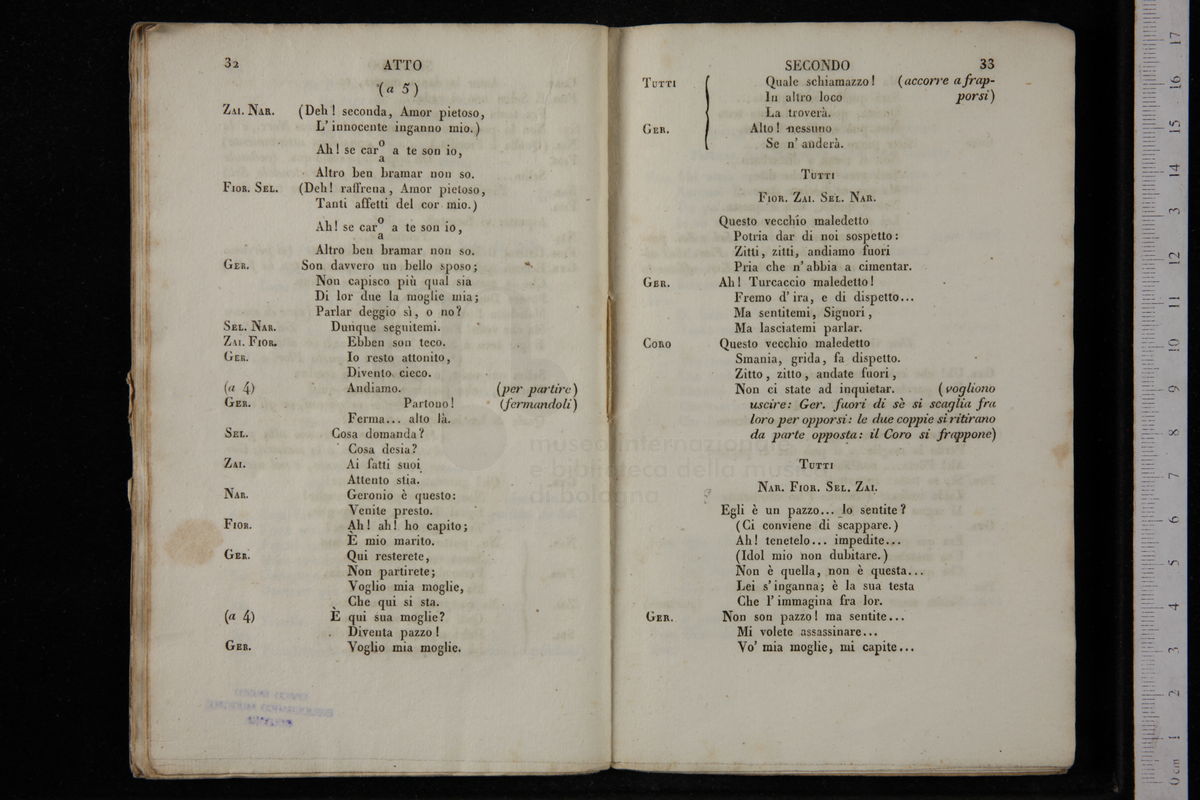 32
ATTO
(a 5)
ZAI. NAR. (Deh! seconda, Amor pietoso,
L' innocente inganno mio.)
Ah! se car o/a a te son io,
Altro ben bramar non so.
FIOR. SEL. (Deh! raffrena, Amor pietoso,
Tanti affetti del cor mio.)
Ah! se car o/a a te son io,
Altro ben bramar non so.
GER. Son davvero un bello sposo;
Non capisco più qual sia
Di lor due la moglie mia;
Parlar deggio sì, o no?
SEL. NAR. Dunque seguitemi.
ZAI. FIOR. Ebben son teco.
GER. Io resto attonito,
Divento cieco.
(a 4) Andiamo. (per partire)
GER. Partono! (fermandoli)
Ferma... alto là.
SEL. Cosa domanda?
Cosa desia?
ZAI. Ai fatti suoi
Attento stia.
NAR. Geronio è questo:
Venite presto.
FIOR. Ah! ah! ho capito;
È mio marito.
GER. Qui resterete,
Non partirete;
Voglio mia moglie,
Che qui si sta.
(a 4) È qui sua moglie?
Diventa pazzo!
GER. Voglio mia moglie.
SECONDO
33
TUTTI Quale schiamazzo! (accorre a frap-
In altro loco porsi)
La troverà.
GER. Alto! nessuno
Se n' anderà.
TUTTI
FIOR. ZAI. SEL. NAR.
Questo vecchio maledetto
Potria dar di noi sospetto:
Zitti, zitti, andiamo fuori
Pria che n' abbia a cimentar.
GER. Ah! Turcaccio maledetto!
Fremo d' ira, e di dispetto...
Ma sentitemi, Signori,
Ma lasciatemi parlar.
CORO Questo vecchio maledetto
Smania, grida, fa dispetto.
Zitto, zitto, andate fuori,
Non ci state ad inquietar. (vogliono
uscire: Ger. fuori di sè si scaglia fra
loro per opporsi: le due coppie si ritirano
da parte opposta: il Coro si frappone)
TUTTI
NAR. FIOR. SEL. ZAI.
Egli è un pazzo... lo sentite?
(Ci conviene di scappare.)
Ah! tenetelo... impedite...
(Idol mio non dubitare.)
Non è quella, non è questa...
Lei s' inganna; è la sua testa
Che l' immagina fra lor.
GER. Non son pazzo! ma sentite...
Mi volete assassinare...
Vo' mia moglie, mi capite...
museo internazionale
e biblioteca della musica
di bologna
0 cm 1 2 3 4 5 6 7 8 9 10 11 12 13 14 15 16 17